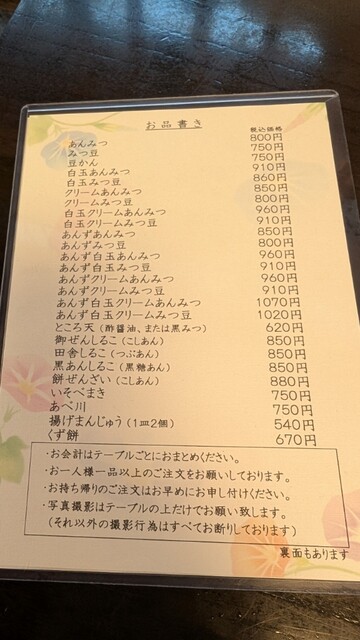 お品書き
税込価格
あんみつ 800円
みつ豆 750円
豆かん 750円
白玉あんみつ 910円
白玉みつ豆 860円
クリームあんみつ 850円
クリームみつ豆 800円
白玉クリームあんみつ 960円
白玉クリームみつ豆 910円
あんずあんみつ 850円
あんずみつ豆 800円
あんず白玉あんみつ 960円
あんず白玉みつ豆 910円
あんずクリームあんみつ 960円
あんずクリームみつ豆 910円
あんず白玉クリームあんみつ 1070円
あんず白玉クリームみつ豆 1020円
ところ天（酢醤油、または黒みつ） 620円
御ぜんしるこ（こしあん） 850円
田舎しるこ（つぶあん） 850円
黒あんしるこ（黒糖あん） 850円
餅ぜんざい（こしあん） 880円
いそべまき 750円
あべ川 750円
揚げまんじゅう（1皿2個） 540円
くず餅 670円
・お会計はテーブルごとにおまとめください。
・お一人様一品以上のご注文をお願いしております。
・お持ち帰りのご注文はお早めにお申し付けください。
・写真撮影はテーブルの上だけでお願い致します。
（それ以外の撮影行為はすべてお断りしております）
裏面もあります